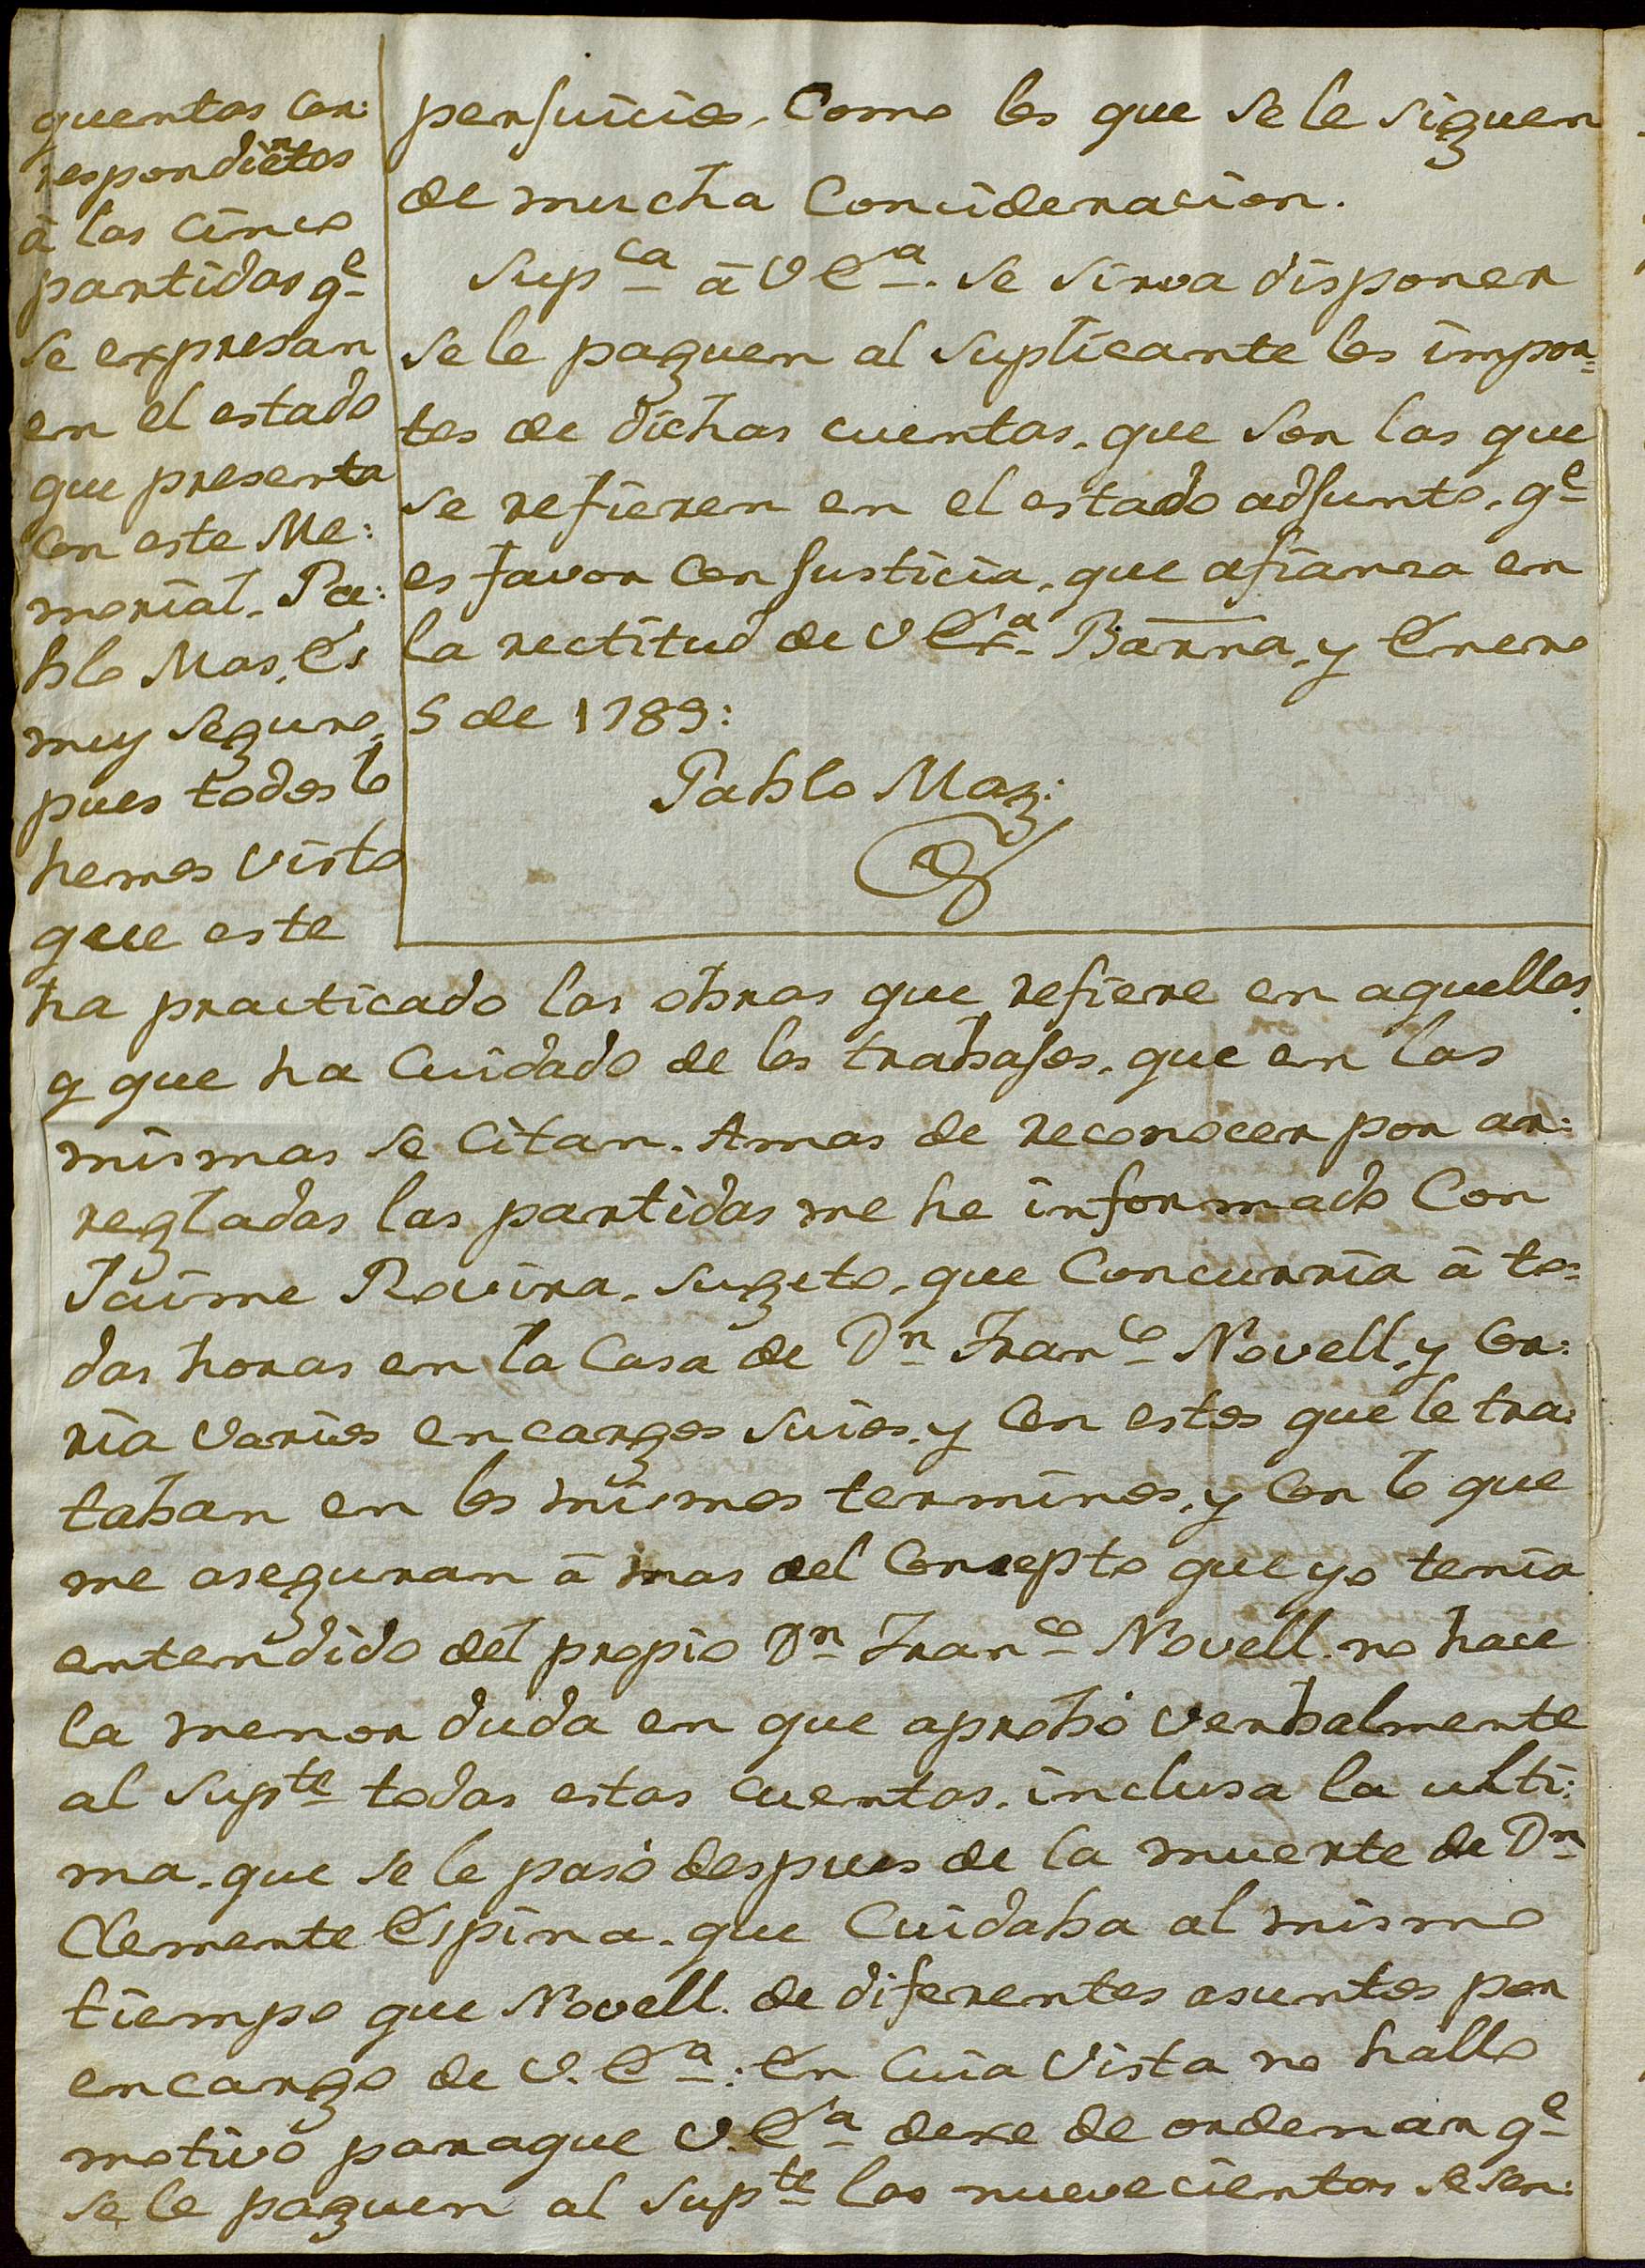 perjuicios, Como los que se le siguen
de mucha Concideracion.
Sup.ca â V Ex.a se sirva disponer
se le paguen al suplicante los impor=
tes de dichas cuentas, que son las que
se refieren en el estado adjunto, q.e
es favor con Justicia, que afianza en
la rectitud de V Ex.a Barna, y Enero
5 de 1789:
Pablo Mas:
quentas cor:
respondientes
â las cinco
partidas q.e
se expresan
en el estado
que presenta
con este Me:
morial. Pa:
blo Mas, Es
muy seguro,
pues todos lo
hemos visto
que este
ha practicado las obras que refiere en aquellas,
y que ha Cuidado de los trabajos, que en las
mismas se Citan. Amas de reconocer por ar:
regladas las partidas me he informado Con
Jaime Rovira, sugeto, que Concurria â to=
das horas en la Casa de D.n Fran.co Novell, y Cor:
ria varios encargos suios, y con estos que le tra:
taban en los mismos terminos, y con lo que
me aseguran â mas del Consepto que yo tenia
entendido del propio D.n Fran.co Novell. no hace
la menor duda en que aprobó verbalmente
al Sup.te todas estas cuentas, inclusa la ulti:
ma, que se le pasó despues de la muerte de D.n
Clemente Espina, que Cuidaba al mismo
tiempo que Novell. de diferentes asuntos por
encargo de V. E.a: En Cuia Vista no hallo
motivo paraque V. E.a dexe de ordenar q.e
se le paguen al Sup.te las nuevecientas sesen: